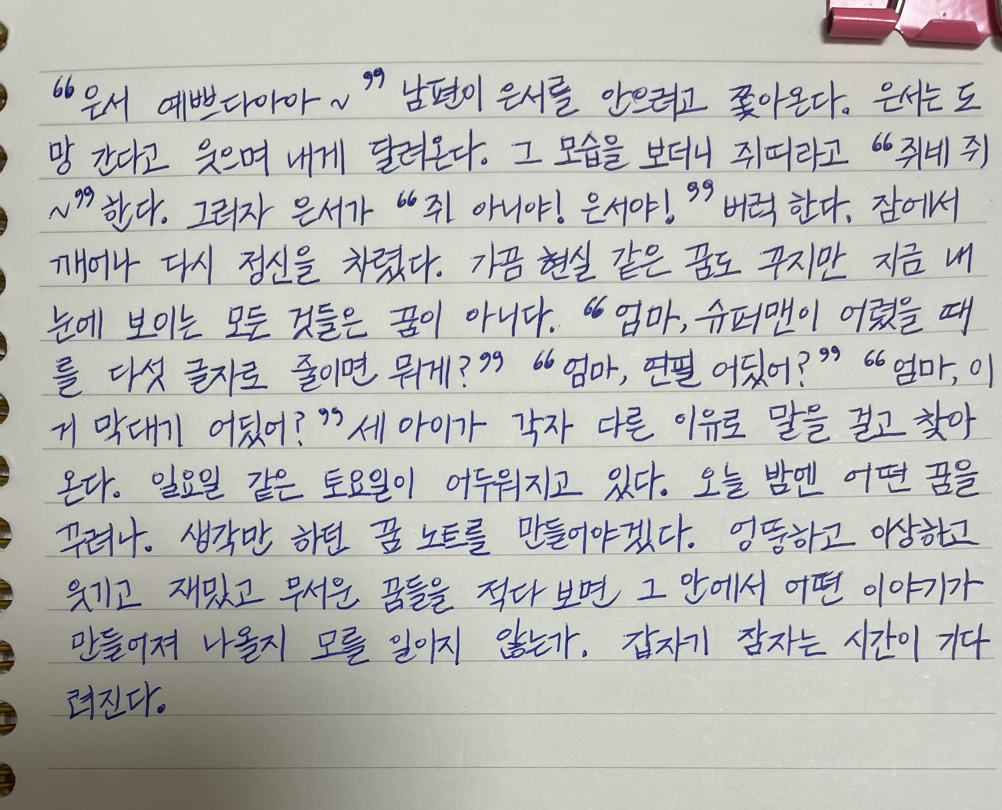 “은서 예쁘다아아~” 남편이 은서를 안으려고 쫓아온다. 은서는 도
망 간다고 웃으며 내게 달려온다. 그 모습을 보더니 쥐띠라고 “쥐네 쥐
~” 한다. 그러자 은서가 “쥐 아니야! 은서야!” 버럭 한다. 잠에서
깨어나 다시 정신을 차렸다. 가끔 현실 같은 꿈도 꾸지만 지금 내
눈에 보이는 모든 것들은 꿈이 아니다. “엄마, 슈퍼맨이 어렸을 때
를 다섯 글자로 줄이면 뭐게?” “엄마, 연필 어딨어?” “엄마, 이
거 막대기 어딨어?” 세 아이가 각자 다른 이유로 말을 걸고 찾아
온다. 일요일 같은 토요일이 어두워지고 있다. 오늘 밤엔 어떤 꿈을
꾸려나. 생각만 하던 꿈 노트를 만들어야겠다. 엉뚱하고 이상하고
웃기고 재밌고 무서운 꿈들을 적다 보면 그 안에서 어떤 이야기가
만들어져 나올지 모를 일이지 않는가. 갑자기 잠자는 시간이 기다
려진다.